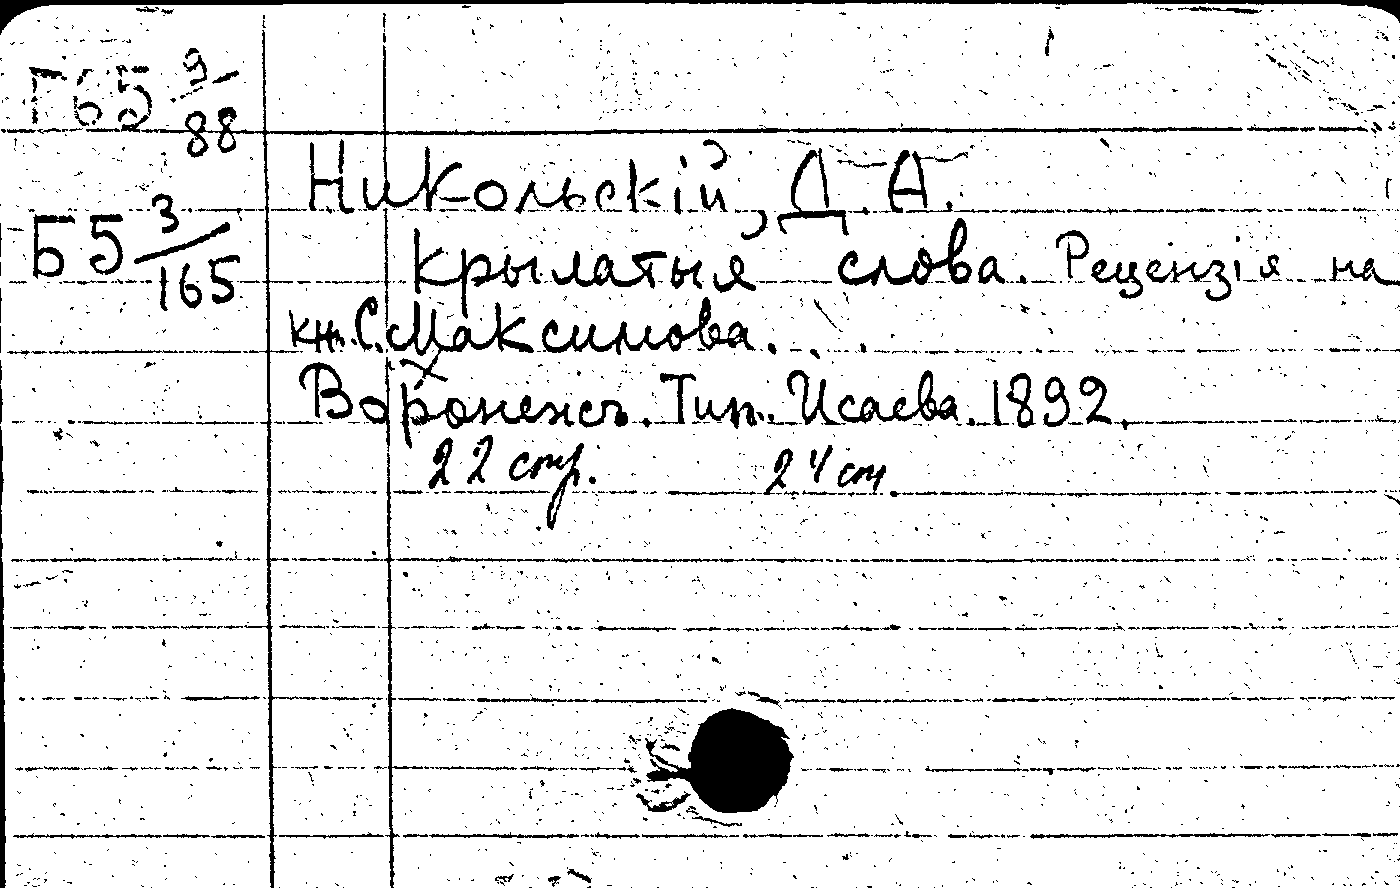 Г65 9/88
Никольскій, Д. А.
Б5 3/165
Крылатыя слова. Рецензія на
кн. С. Максимова...
Воронежъ. Тип. Исаева. 1892.
22 стр. 24 см